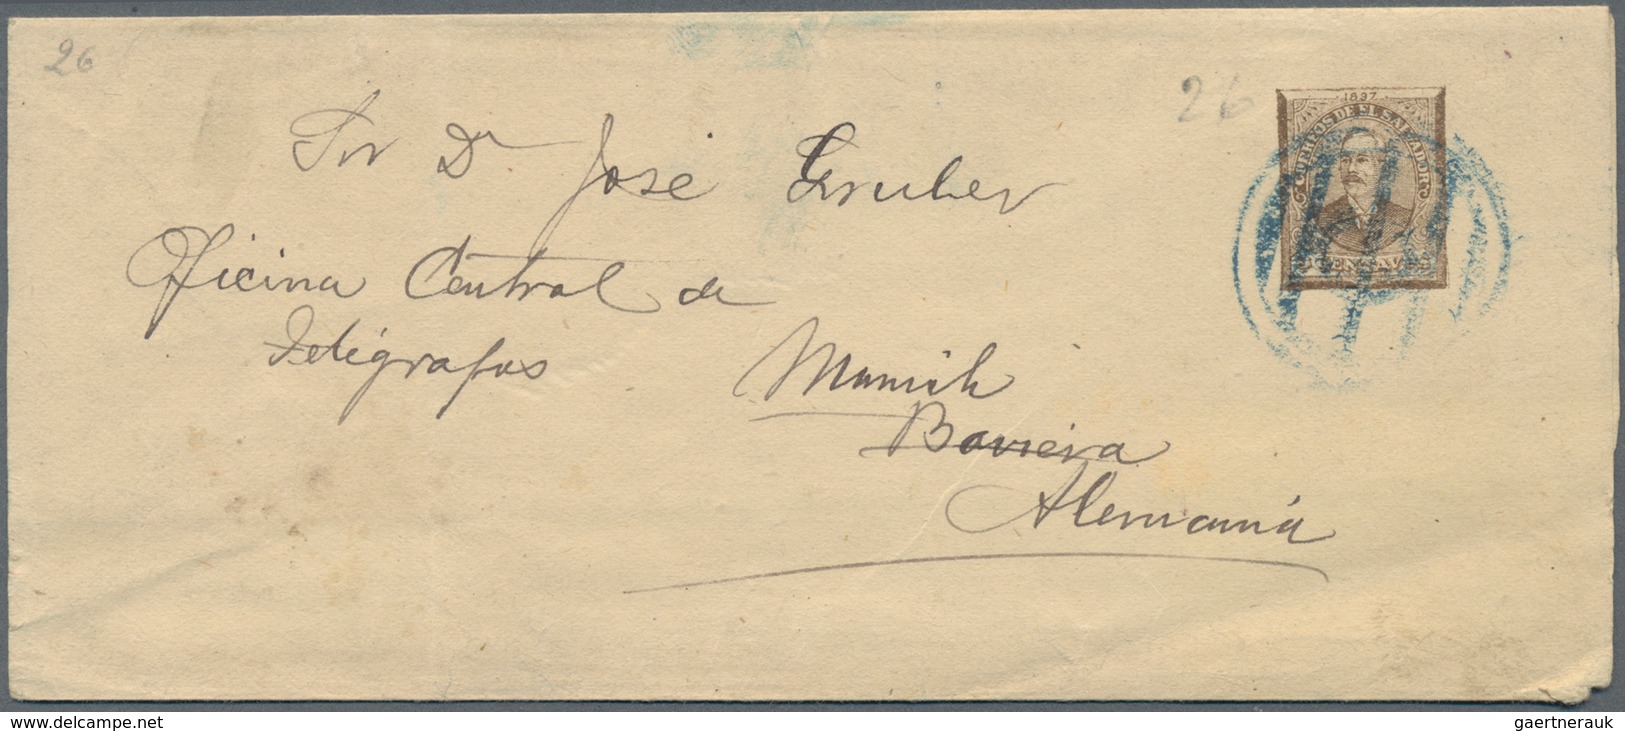 26
26
1897
CORREOS DE EL SALVADOR
CENTAVOS
Sr Dr José Gruber
Oficina Central de
Telégrafos
Munich
Baviera
Alemania
www.delcampe.net
gaertnerauk